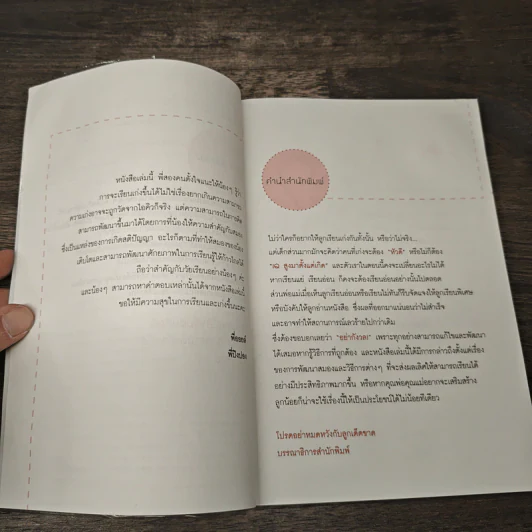 หนังสือเล่มนี้ พี่สองคนตั้งใจแนะให้น้องๆ รู้ว่า
การจะเรียนเก่งขึ้นได้ไม่ใช่เรื่องยากเกินความสามารถ
ความเก่งอาจจะถูกวัดจากไอคิวก็จริง แต่ความสามารถในการคิด
สามารถพัฒนาขึ้นมาได้โดยการที่น้องให้ความสำคัญกับสมอง
ซึ่งเป็นแหล่งของการเกิดสติปัญญา อะไรก็ตามที่ทำให้สมองของน้อง
เติบโตและสามารถพัฒนาศักยภาพในการเรียนรู้ให้ก้าวไกลได้
ถือว่าสำคัญกับวัยเรียนอย่างน้องๆ ค่ะ
และน้องๆ สามารถหาคำตอบเหล่านั้นได้จากหนังสือเล่มนี้
ขอให้มีความสุขในการเรียนและเก่งขึ้นนะคะ
พี่ปิงปอง
คำนำสำนักพิมพ์
ไม่ว่าใครก็อยากให้ลูกเรียนเก่งกันทั้งนั้น หรือว่าไม่จริง...
แต่เด็กส่วนมากมักจะคิดว่าคนที่เก่งจะต้อง "หัวดี" หรือไม่ก็ต้อง
"IQ สูงมาตั้งแต่เกิด" และตัวเราในตอนนี้คงจะเปลี่ยนอะไรไม่ได้
หากเรียนแย่ เรียนอ่อน ก็คงจะต้องเรียนอ่อนอย่างนั้นไปตลอด
ส่วนพ่อแม่เมื่อเห็นลูกเรียนอ่อนหรือเรียนไม่ทันก็รีบจัดแจงให้ลูกเรียนพิเศษ
หรือบังคับให้ลูกอ่านหนังสือ ซึ่งผลที่ออกมาแน่นอนว่าไม่สำเร็จ
และอาจทำให้สถานการณ์เลวร้ายไปกว่าเดิม
ซึ่งต้องขอบอกเลยว่า "อย่ากังวล" เพราะทุกอย่างสามารถแก้ไขและพัฒนา
ได้เสมอหากรู้วิธีการที่ถูกต้อง และหนังสือเล่มนี้ได้มีการกล่าวถึงตั้งแต่เรื่อง
ของการพัฒนาสมองและวิธีการต่างๆ ที่จะส่งผลผลิตให้สามารถเรียนได้
อย่างมีประสิทธิภาพมากขึ้น หรือหากคุณพ่อคุณแม่อยากจะเสริมสร้าง
ลูกน้อยก็น่าจะใช้เรื่องนี้ให้เป็นประโยชน์ได้ไม่น้อยทีเดียว
โปรดอย่าหมดหวังกับลูกเด็ดขาด
บรรณาธิการสำนักพิมพ์